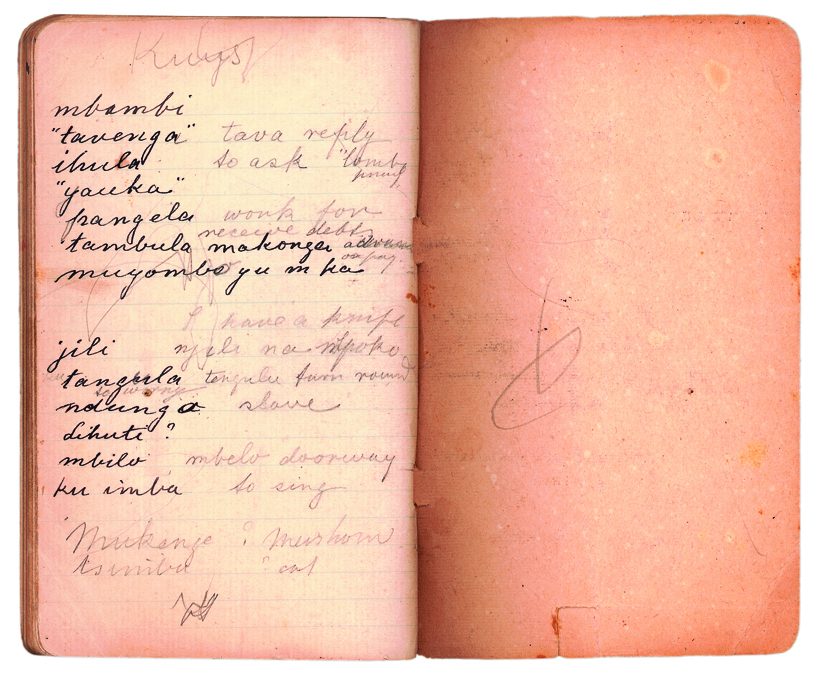 mbambi
"tavenga" tava reply
ihula to ask "lomb
"yauka"
pangela work for
receive debt
tambula makonga
muyombo yu m ka
I have a knife
jili njili na mpoko
tangula tengulu turn round
ndunga slave
dihuti ?
mbilo mbelo doorway
ku imba to sing
Mukenge ?
tsimba ? cat